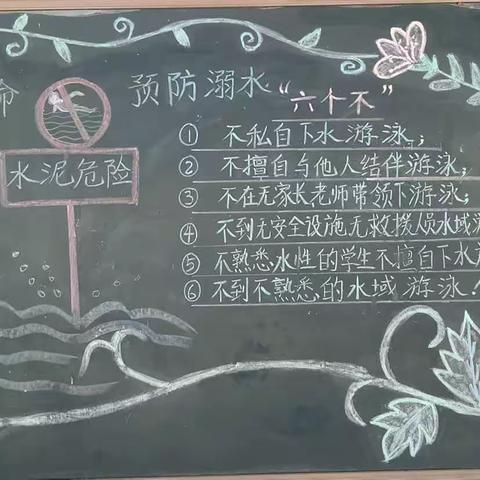 命
预防溺水
“六个不”
水泥危险
① 不私自下水游泳；
② 不擅自与他人结伴游泳；
③ 不在无家长老师带领下游泳；
④ 不到无安全设施、无救援人员水域游
⑤ 不熟悉水性的学生不擅自下水
⑥ 不到不熟悉的水域游泳！